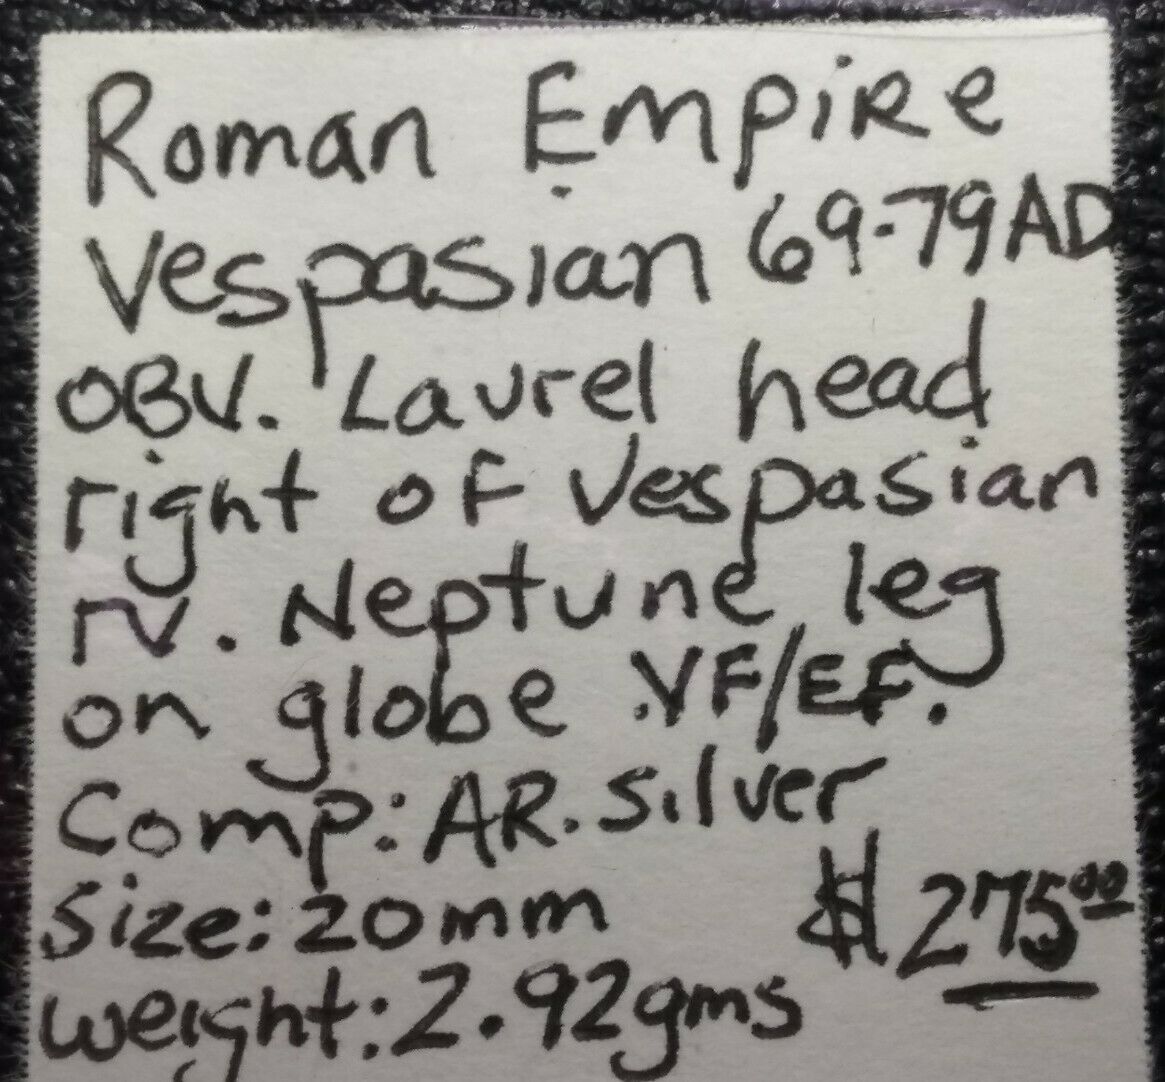 Roman Empire
Vespasian 69-79AD
OBV. Laurel head
right of Vespasian
rv. Neptune leg
on globe .VF/EF.
Comp: AR. silver
Size: 20mm $275.00
weight: 2.92gms